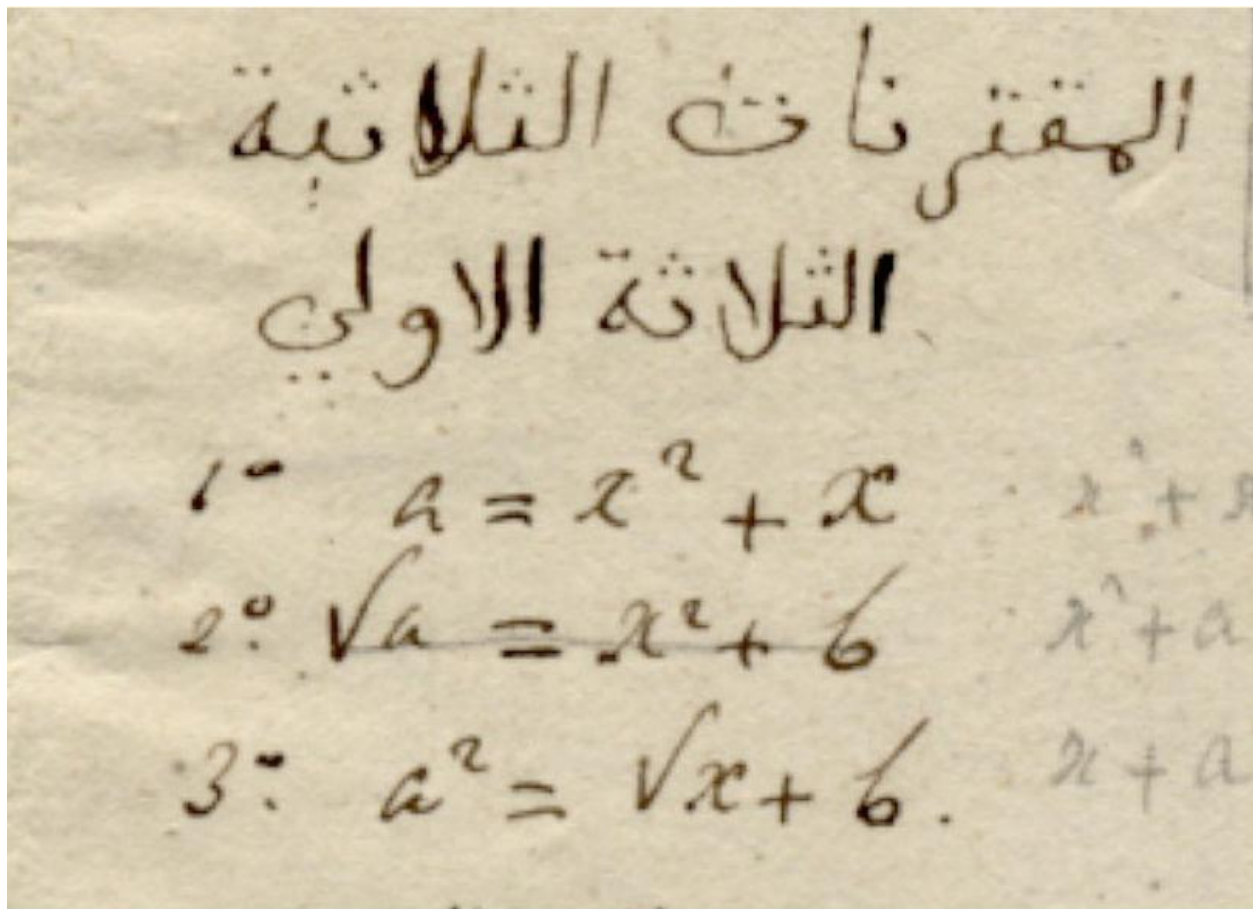 المقترنات الثلاثية
الثلاثة الاولي
1° a = x² + x x² + x
2° √a = x² + b x² + a
3° a² = √x + b. x + a